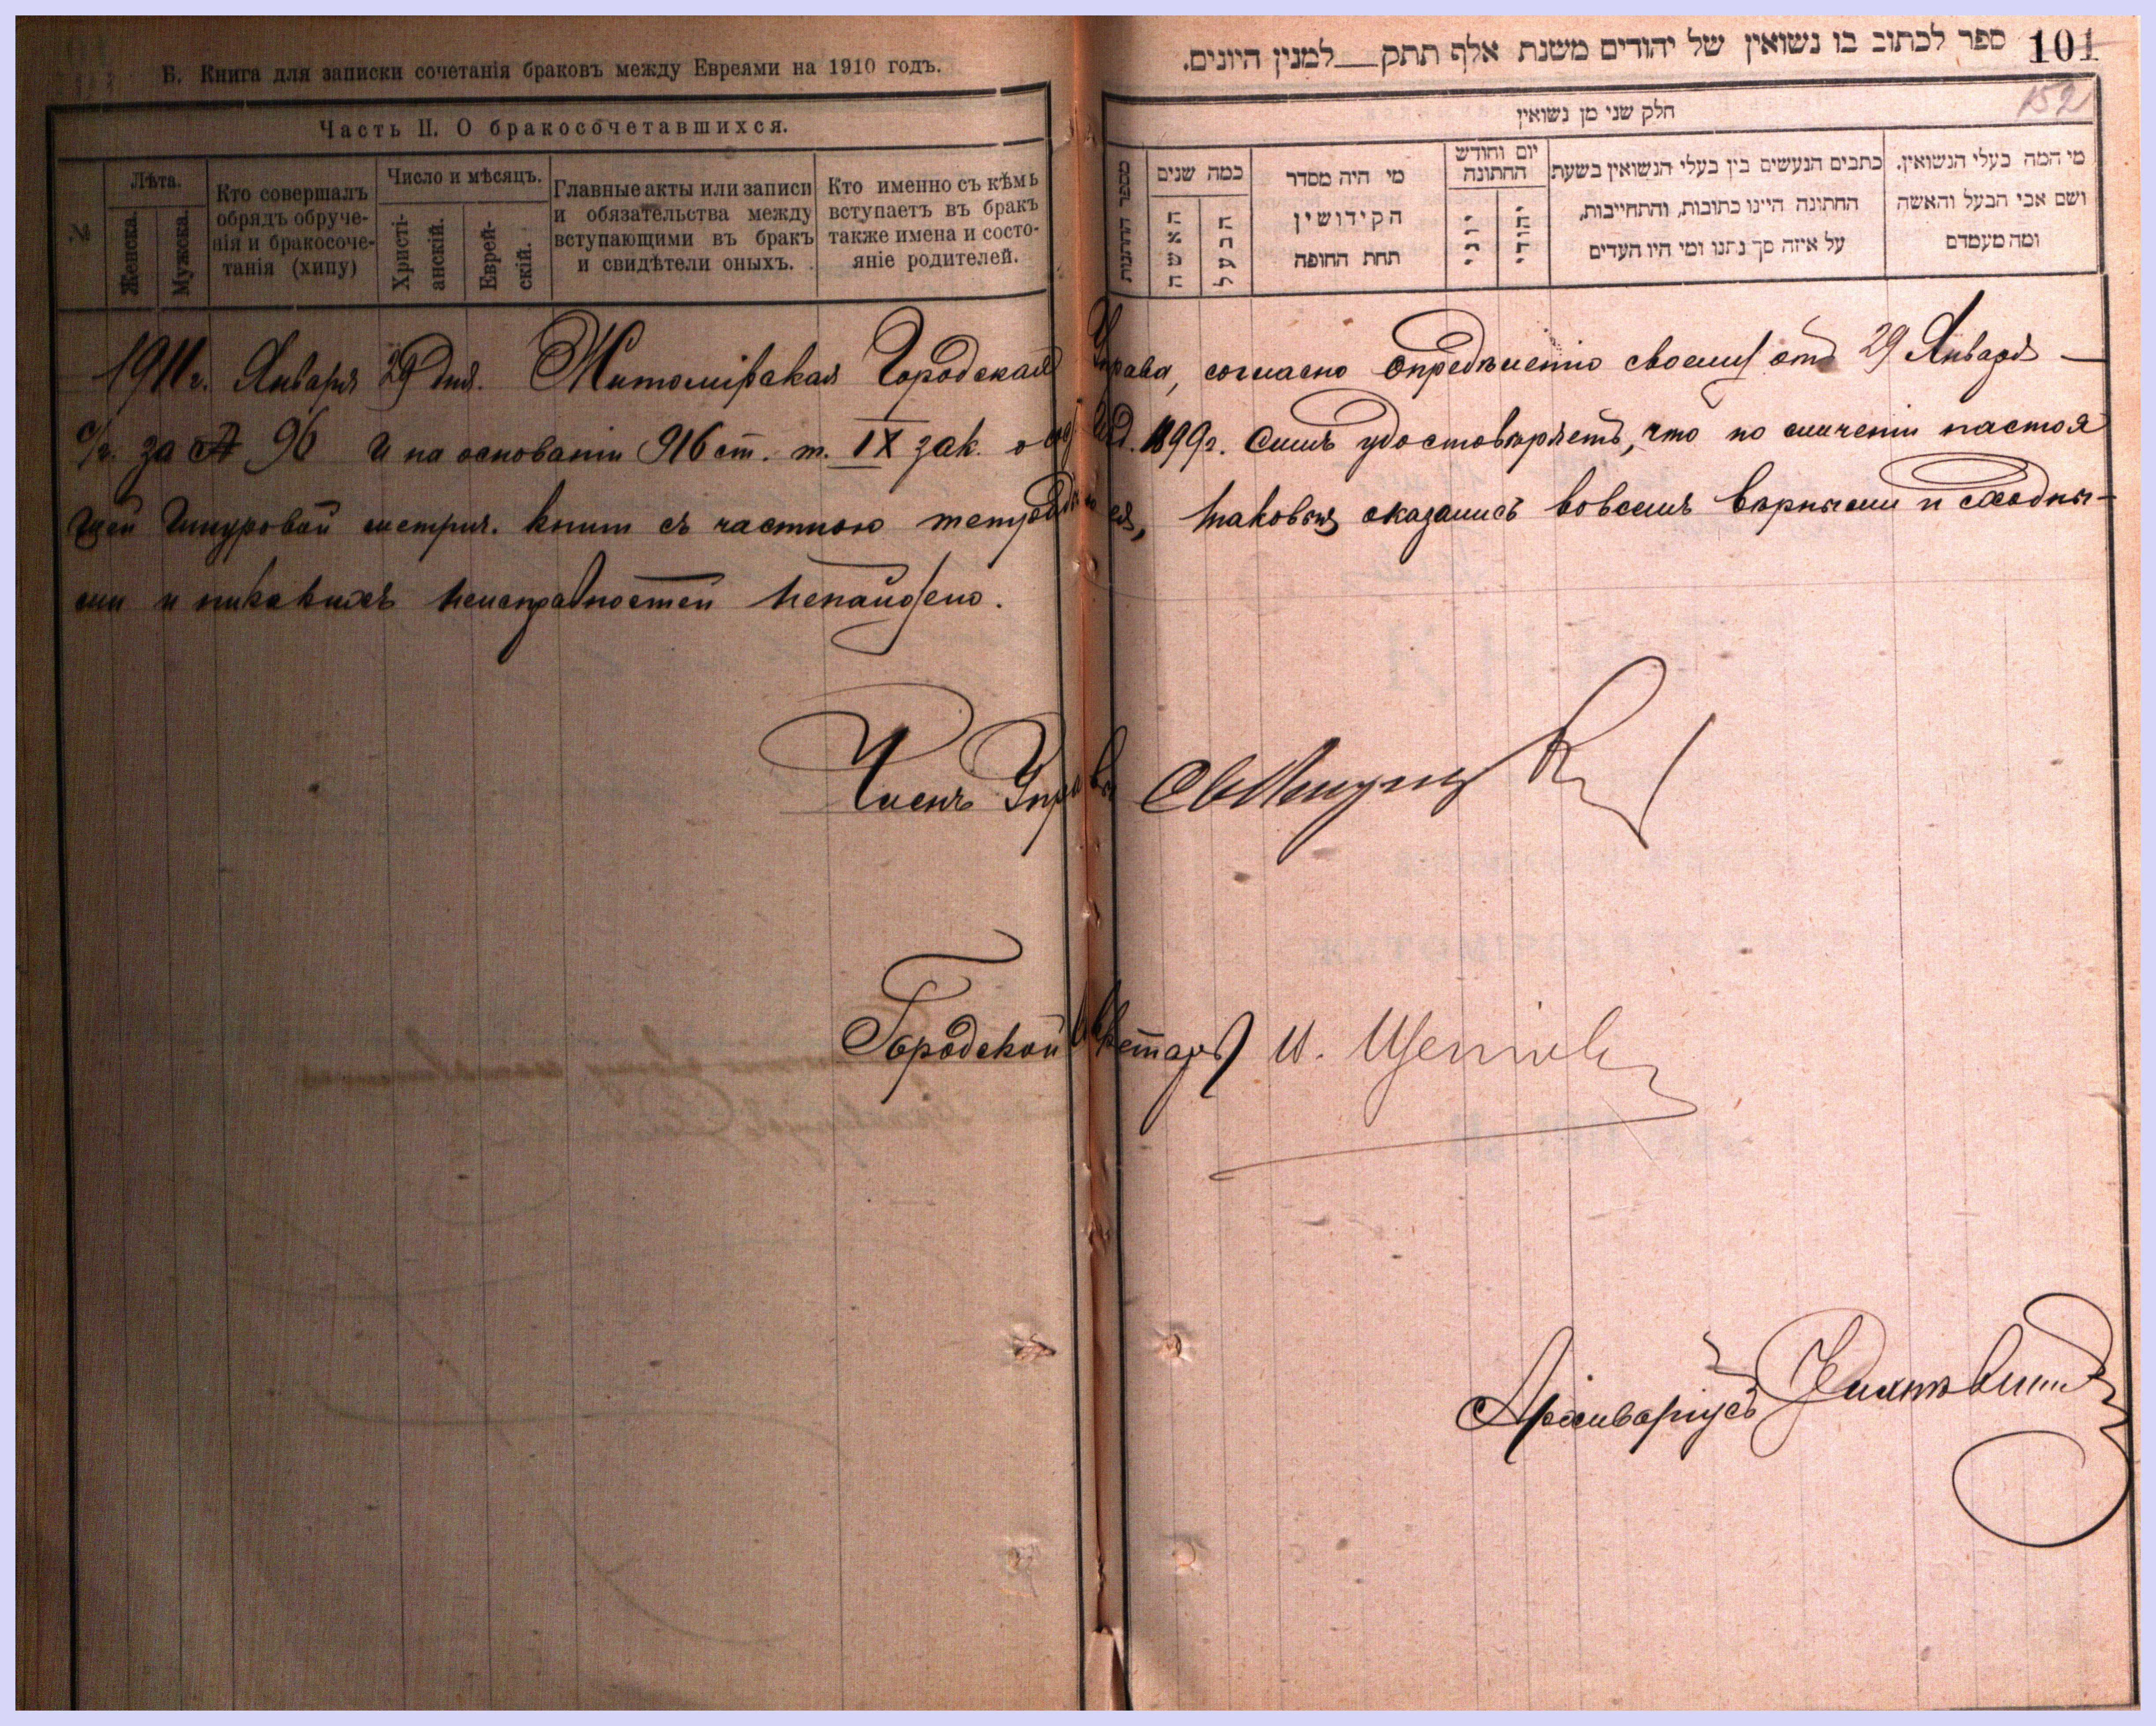 Б. Книга для записки сочетанія браковъ между Евреями на 1910 годъ.
Часть II. О бракосочетавшихся.
№
Лѣта.
Женска.
Мужска.
Кто совершалъ
обрядъ обруче-
нія и бракосоче-
танія (хипу)
Число и мѣсяцъ.
Христі-
анскій.
Еврей-
скій.
Главные акты или записи
и обязательства между
вступающими въ бракъ
и свидѣтели оныхъ.
Кто именно съ кѣмъ
вступаетъ въ бракъ
также имена и состо-
яніе родителей.
101
ספר לכתוב בו נשואין של יהודים משנת אלף תתק__למנין היונים.
152
חלק שני מן נשואין
מספר החתונות
כמה שנים
האשה
הבעל
מי היה מסדר
הקידושין
תחת החופה
יום וחודש
החתונה
יוני
יהודי
כתבים הנעשים בין בעלי הנשואין בשעת
החתונה היינו כתובות, והתחייבות,
על איזה סך נתנו ומי היו העדים
מי המה בעלי הנשואין.
ושם אבי הבעל והאשה
ומה מעמדם
1911 г. Января 29 дня. Житомірская Городская Управа, согласно опредѣленію своему отъ 29 Января
с/г. за № 96 и на основаніи 916 ст. т. IX зак. о сост. изд. 1899 г. симъ удостовѣряетъ, что по сличеніи настоя
щей шнуровой метрич. книги съ частною тетрадью ея, таковыя оказались вовсемъ вѣрными и сходны-
ми и никакихъ неисправностей ненайдено.
Членъ Управы
Городской Секретарь И.
Архиваріусъ